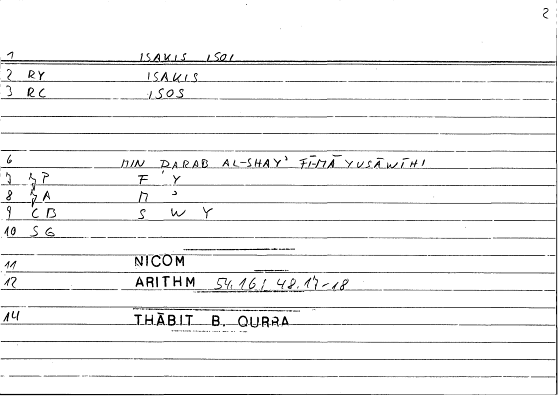 2
1 ISAKIS ISOI
2 RY ISAKIS
3 RC ISOS
6 MIN ḌARAB AL-SHAY' FĪ-MĀ YUSĀWĪHI
7 ʒP F ' Y
8 ʒA M ᵓ
9 CB S W Y
10 SG
11 NICOM
12 ARITHM 54.16; 48.17-18
14 THĀBIT B. QURRA